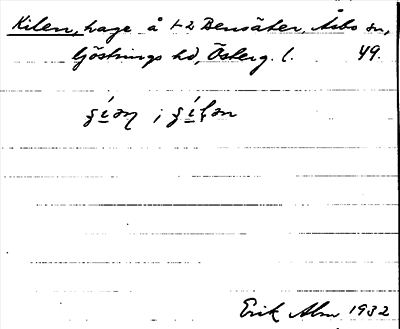 Kilen, hage å 1-2 Bensäter, Åsbo sn,
Göstrings hd, Österg. l. 49.
Erik Alm 1932